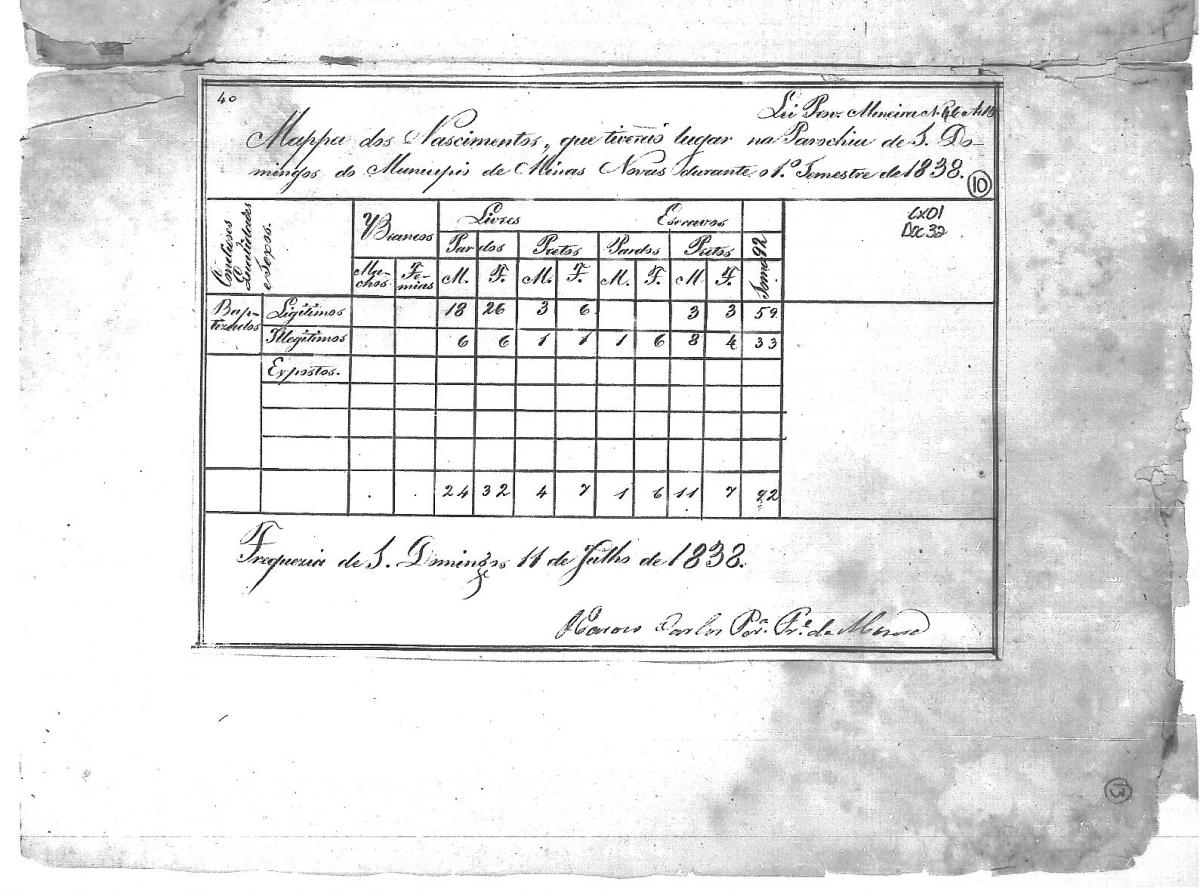 40
Lei Prov. Mineira N. 46 Art
Mappa dos Nascimentos, que tiverão lugar na Parochia de S. Do-
mingos do Municipio de Minas Novas durante o 1.º Semestre de 1838.
10
Cx 01
Doc 32
Condições Qualidades e Sexos.
Brancos Livres Escravos Soma 92
Pardos Pretos Pardos Pretos
Ma-chos Fe-mias M. F. M. F. M. F. M F.
Bap-tizados Legitimos 18 26 3 6 3 3 59
Illegitimos 6 6 1 1 1 6 8 4 33
Expostos.
. . 24 32 4 7 1 6 11 7 92
Freguezia de S. Domingos 11 de Julho de 1838.
Carlos Per.ª Fr.e de Moura
13